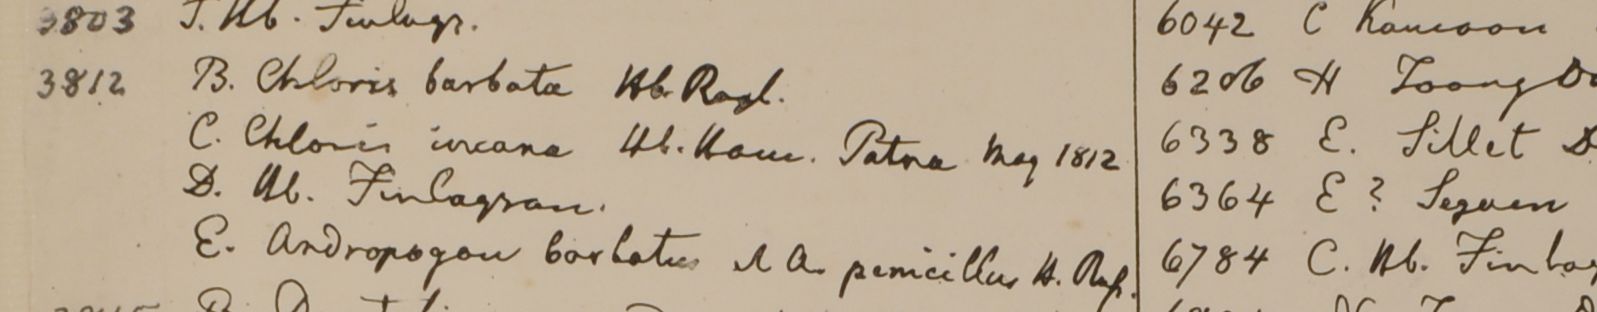 3803 F. Hb. Finlays.
3812 B. Chloris barbata Hb. Roxb.
C. Chloris incana Hb. Ham. Patna May 1812
D. Hb. Finlayson.
E. Andropogon barbatus & A. penicillus H.
6042 C
6206 H Toong Do
6338 E. Sillet D
6364 E ? Segaen
6784 C. Hb. Finlay